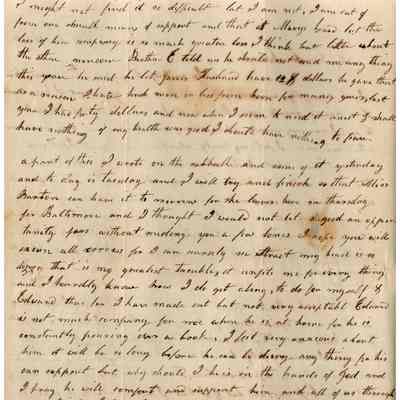 I might not find it so difficult but I am not, I am cut of
from one should means of support and that is Marys and but the
loss of her company is so much greater loss I think but little about
the other Burton told us he should not send me any thing
this year he said he let Husband have 12 dollars he gave that
as a reason I have bord men in his for many years last
year I had forty dollars and now when I seem to need it most I shall
have nothing if my health was good I should have nothing to fear
a part of this I wrote on the sabbath and some of it yesterday
and to day is tuesday and I will try and finish so that Miss
Burton can have it to morrow for she leaves here on thursday
for Baltimore and I thought I would not let so good an oppor
tunity pass without writing you a few lines I hope you will
excuse all errors for I am scarcely so that my head is so
dizzy that is my greatest trouble, it unfits me for every thing
and I hardly know how I do get along, to do for myself &
Edward thus far I have made out but not very acceptabl Edward
is not much company for me when he is at home for he is
constantly pouring over a book. I feel very anxious about
him it will be so long before he can be doing any thing for his
own support but why should I he is in the hands of God and
I pray he will comfort and support him and all of us through